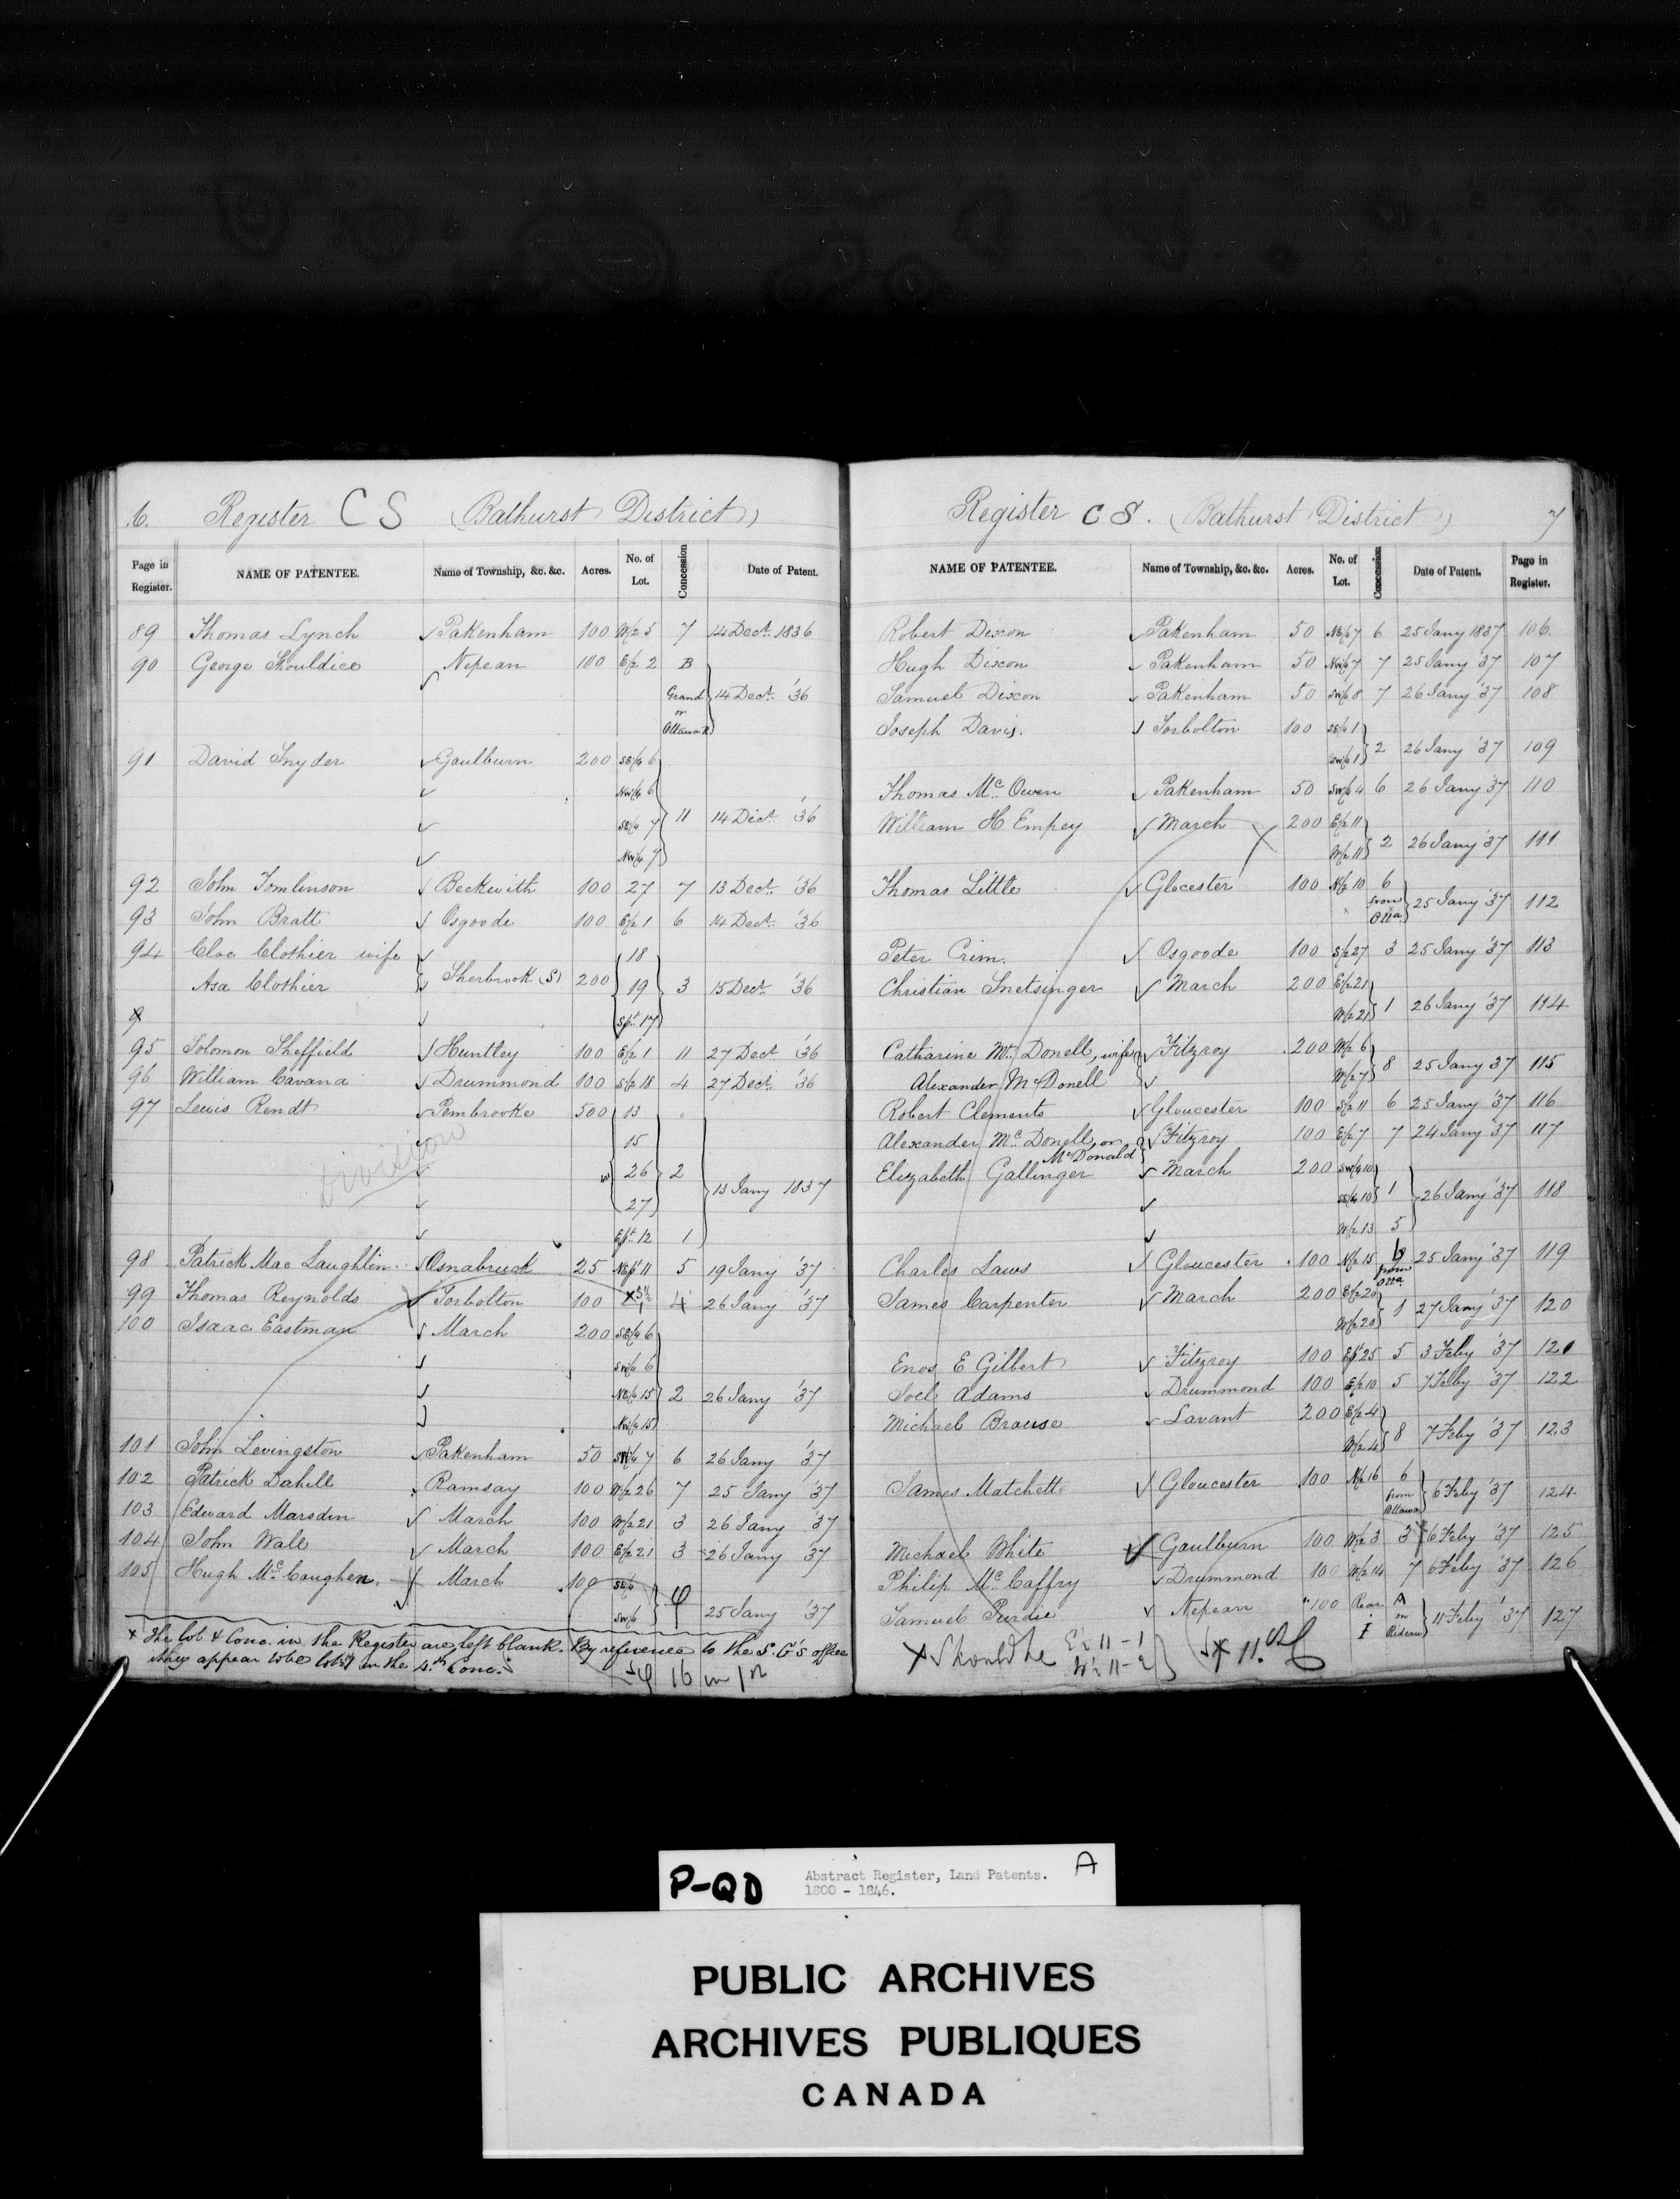 6. Register C S (Bathurst District)
Page in Register. NAME OF PATENTEE. Name of Township, &c. &c. Acres. No. of Lot. Concession Date of Patent.
89 Thomas Lynch Pakenham 100 W/2 5 7 14 Dect. 1836
90 George Shouldice Nepean 100 E/2 2 B
Grand or Ottawa R 14 Dect. '36
91 David Snyder Goulburn 200 SE/4 6
NW/4 6
SE/4 7 11 14 Dect. '36
NW/4 7
92 John Tomlinson Beckwith 100 27 7 13 Dect. '36
93 John Bratt Osgoode 100 E/2 1 6 14 Dect. '36
94 Cloe Clothier wife 18
Asa Clothier Sherbrook (S) 200 19 3 15 Dect. '36
Spt. 17
95 Solomon Sheffield Huntley 100 E/2 1 11 27 Dect. '36
96 William Cavana Drummond 100 S/2 18 4 27 Dect. '36
97 Lewis Rendt Pembrooke 500 13
15
Division 26 2 13 Jany 1837
27
Ept. 12 1
98 Patrick Mac Laughlin Osnabruck 25 NEp 11 5 19 Jany '37
99 Thomas Reynolds Torbolton 100 4 26 Jany '37
100 Isaac Eastman March 200 SE/4 6
SW/4 6
NE/4 15 2 26 Jany '37
NW/4 15
101 John Levingston Pakenham 50 7 6 26 Jany '37
102 Patrick Dahell Ramsay 100 W/2 26 7 25 Jany '37
103 Edward Marsden March 100 W/2 21 3 26 Jany '37
104 John Wall March 100 E/2 21 3 26 Jany '37
105 Hugh Mc. Coughen March 100 SE/4
SW/4 25 Jany '37
x The lot & Conc. in the Register are left blank. By reference to the S. G's office
they appear to be in the 4th. Conc.
16 in 1st
Register C S. (Bathurst District) 7
NAME OF PATENTEE. Name of Township, &c. &c. Acres. No. of Lot. Concession Date of Patent. Page in Register.
Robert Dixon Pakenham 50 NE/4 7 6 25 Jany 1837 106
Hugh Dixon Pakenham 50 NW/4 7 7 25 Jany '37 107
Samuel Dixon Pakenham 50 SW/4 8 7 26 Jany '37 108
Joseph Davis. Torbolton 100 SE/4 1
SW/4 1 2 26 Jany '37 109
Thomas Mc. Owen Pakenham 50 SW/4 4 6 26 Jany '37 110
William H Empey March 200 E/2 11
W/2 11 2 26 Jany '37 111
Thomas Little Glocester 100 N/2 10 6
from Otta. 25 Jany '37 112
Peter Crim. Osgoode 100 S/2 27 3 25 Jany '37 113
Christian Snetsinger March 200 E/2 21
W/2 21 1 26 Jany '37 114
Catharine Mc. Donell, wife Fitzroy 200 W/2 6
Alexander McDonell W/2 7 8 25 Jany 37 115
Robert Clements Gloucester 100 S/2 11 6 25 Jany '37 116
Alexander Mc. Donell, or McDonald Fitzroy 100 E/2 7 7 24 Jany '37 117
Elizabeth Gallinger March 200 SW/4 10
SE/4 10 1 26 Jany '37 118
W/2 13 5
Charles Laws Gloucester 100 N/2 15 6 from Otta 25 Jany '37 119
James Carpenter March 200 E/2 20
W/2 20 1 27 Jany '37 120
Enos E Gilbert Fitzroy 100 E/2 25 5 3 Feby '37 121
Joel Adams Drummond 100 E/2 10 5 7 Feby '37 122
Michael Brouse Lavant 200 E/2 4
W/2 4 8 7 Feby '37 123
James Matchett Gloucester 100 N/2 16 6
from Ottawa 6 Feby '37 124
Michael White Goulburn 100 W/2 3 3 6 Feby '37 125
Philip Mc. Caffry Drummond 100 W/2 14 7 6 Feby '37 126
Samuel Purdie Nepean 100 Rear I A on Rideau 11 Feby '37 127
x Should be E'2 11 - 1
W'2 11 - 2
P-QD Abstract Register, Land Patents. A
1800 - 1846.
PUBLIC ARCHIVES
ARCHIVES PUBLIQUES
CANADA